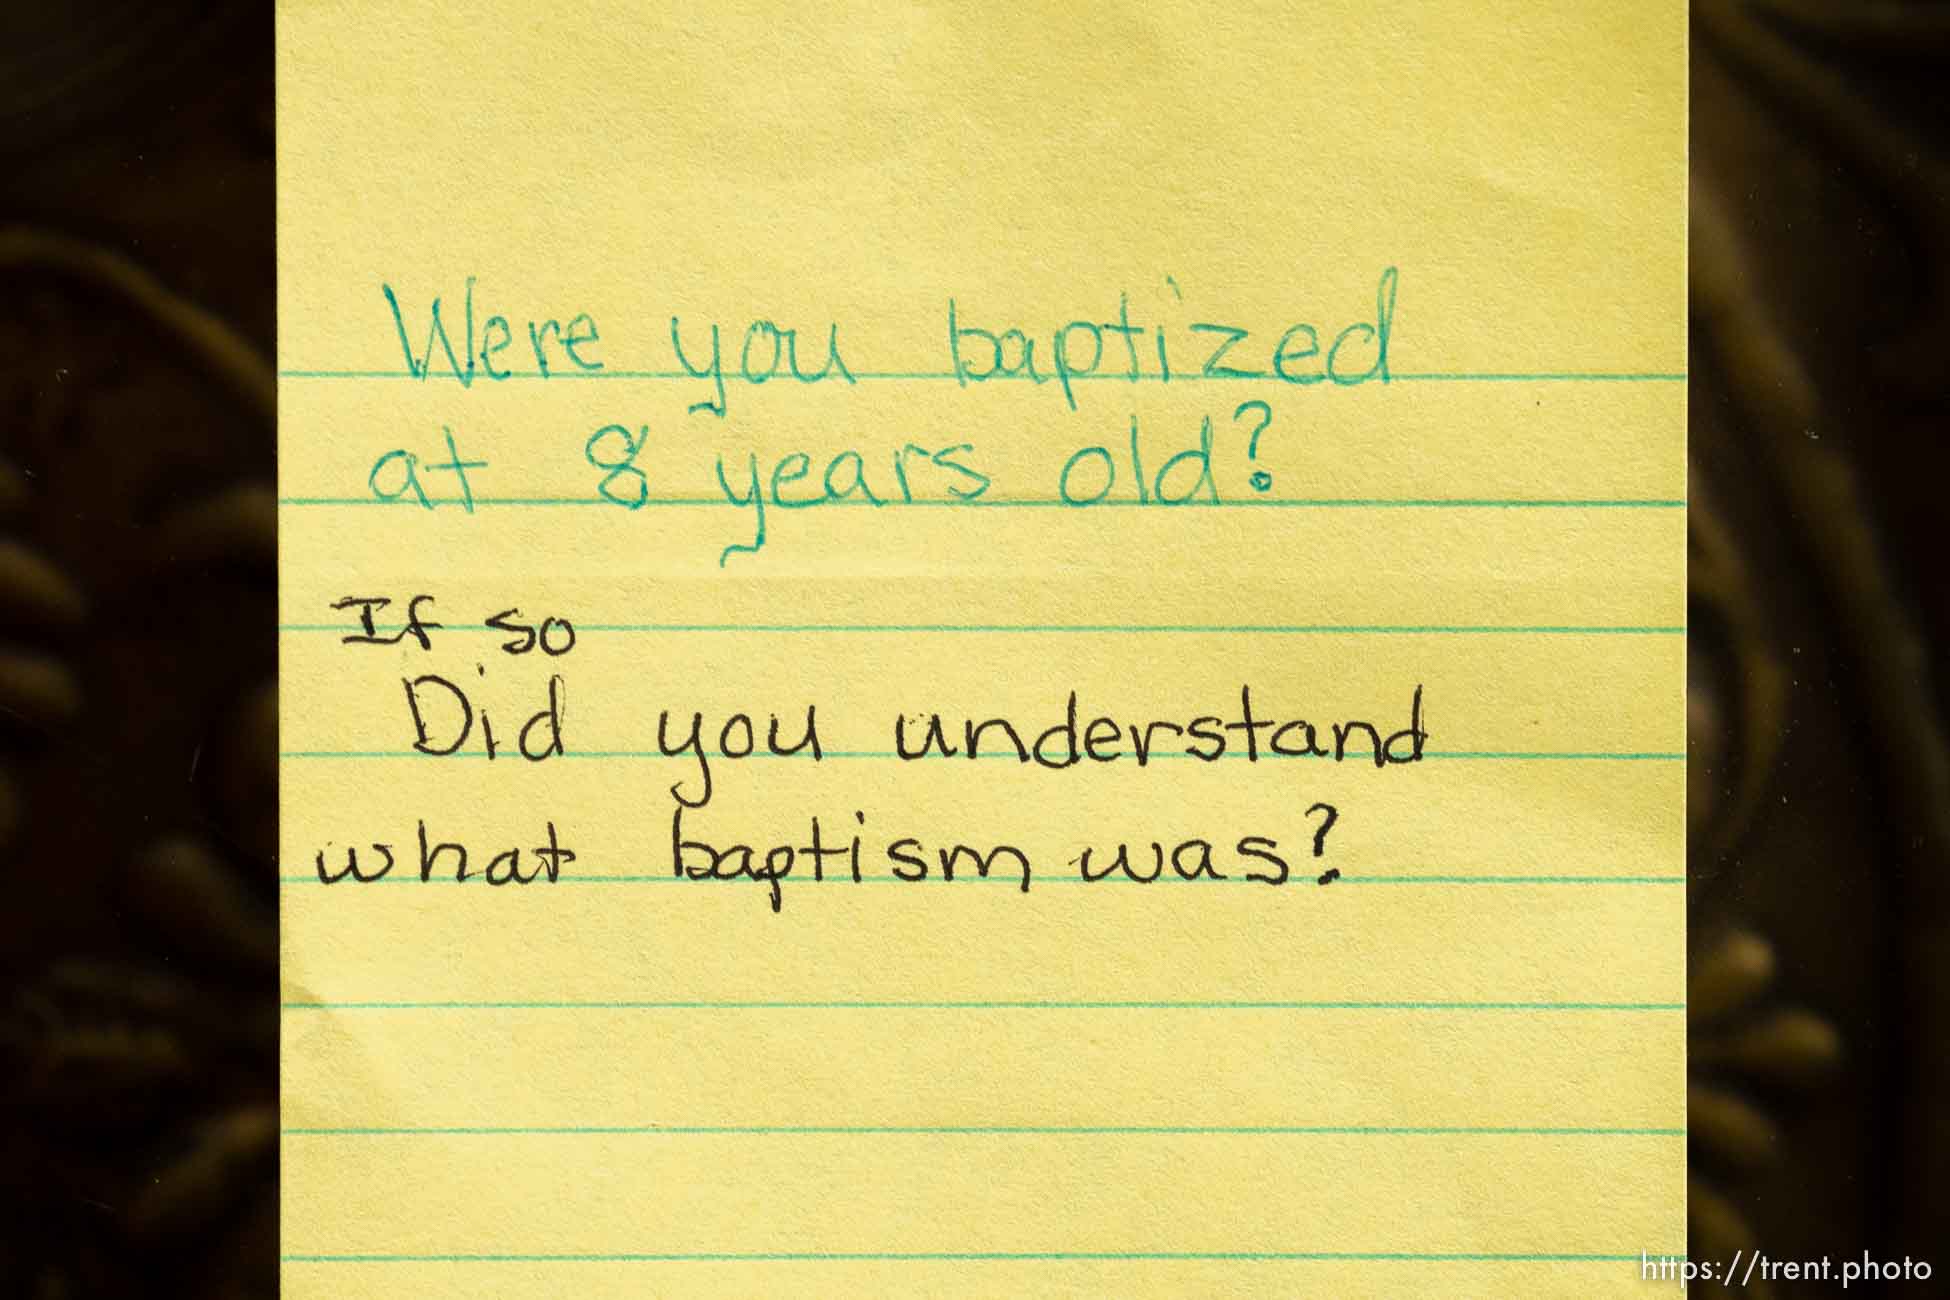 Were you baptized
at 8 years old?
If so
Did you understand
what baptism was?
https://trent.photo